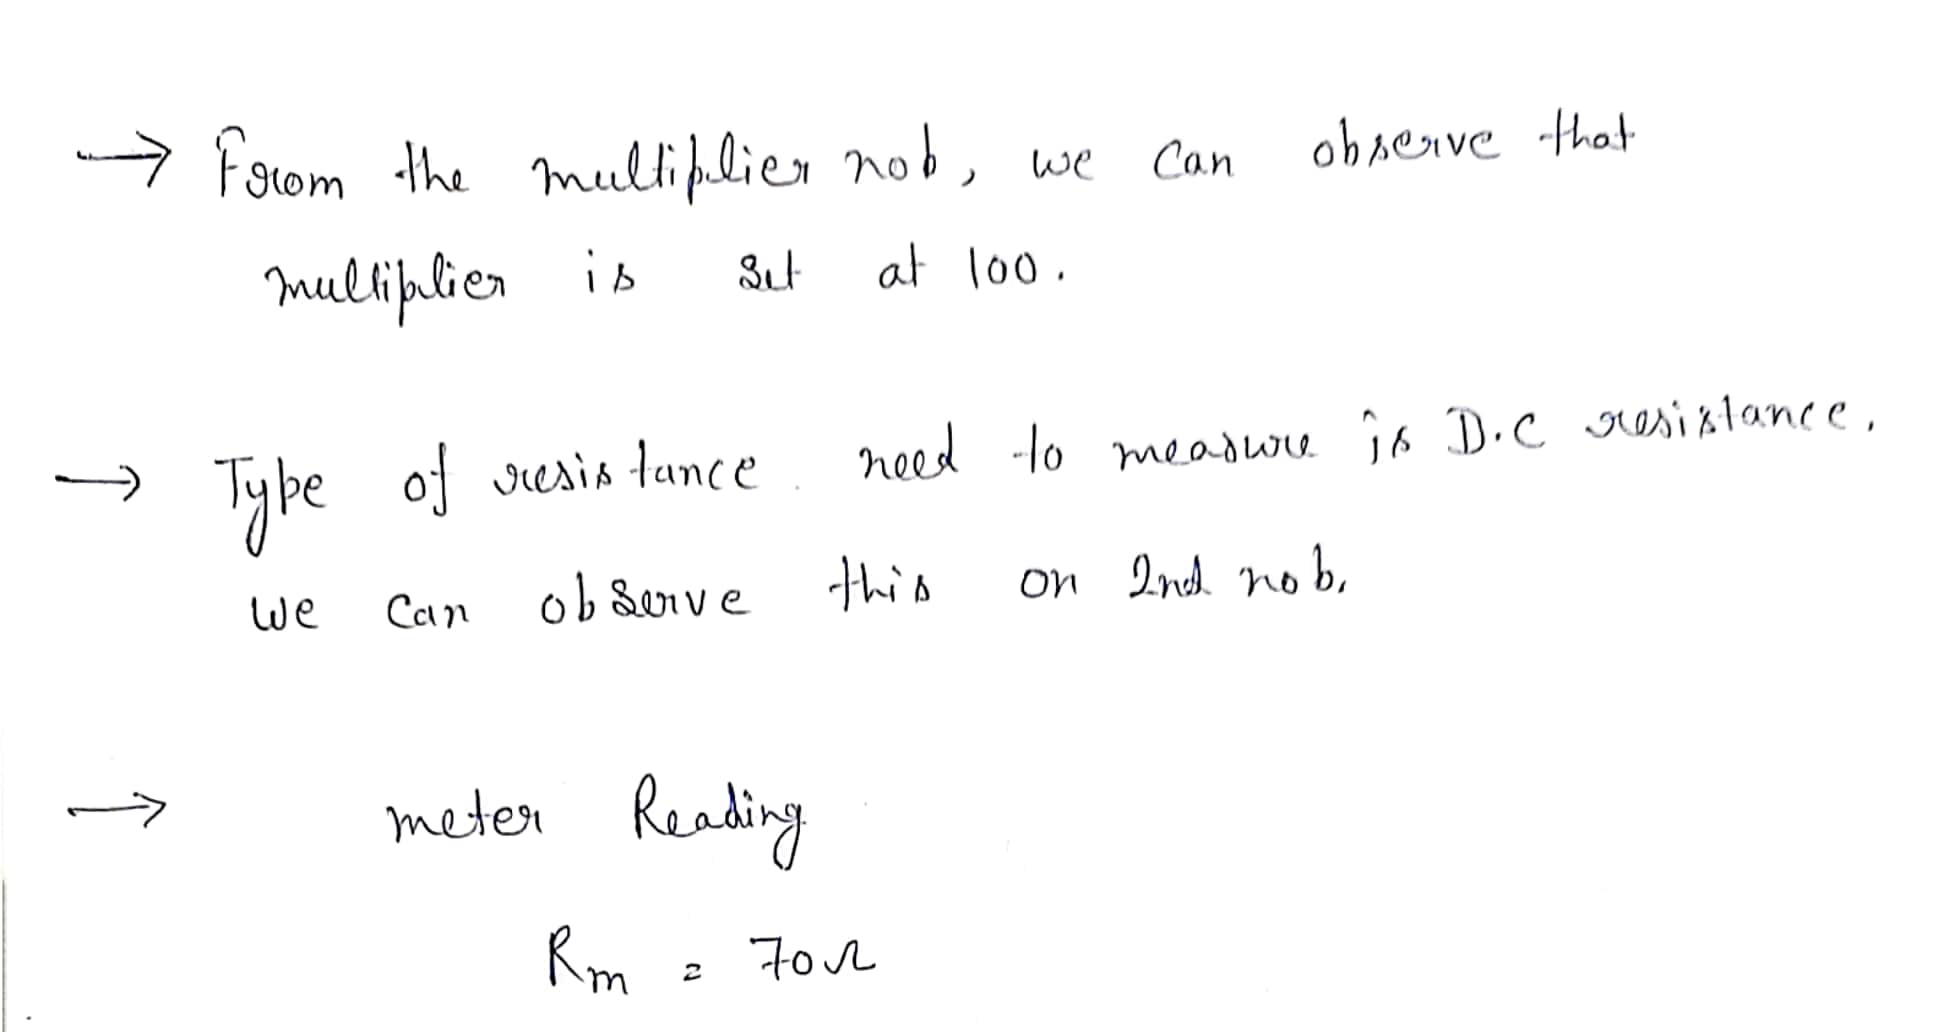 → From the multiplier nob, we can observe that
multiplier is set at 100.
→ Type of resistance need to measure is D.C resistance.
we can observe this on 2nd nob.
→ meter Reading
Rm = 70Ω